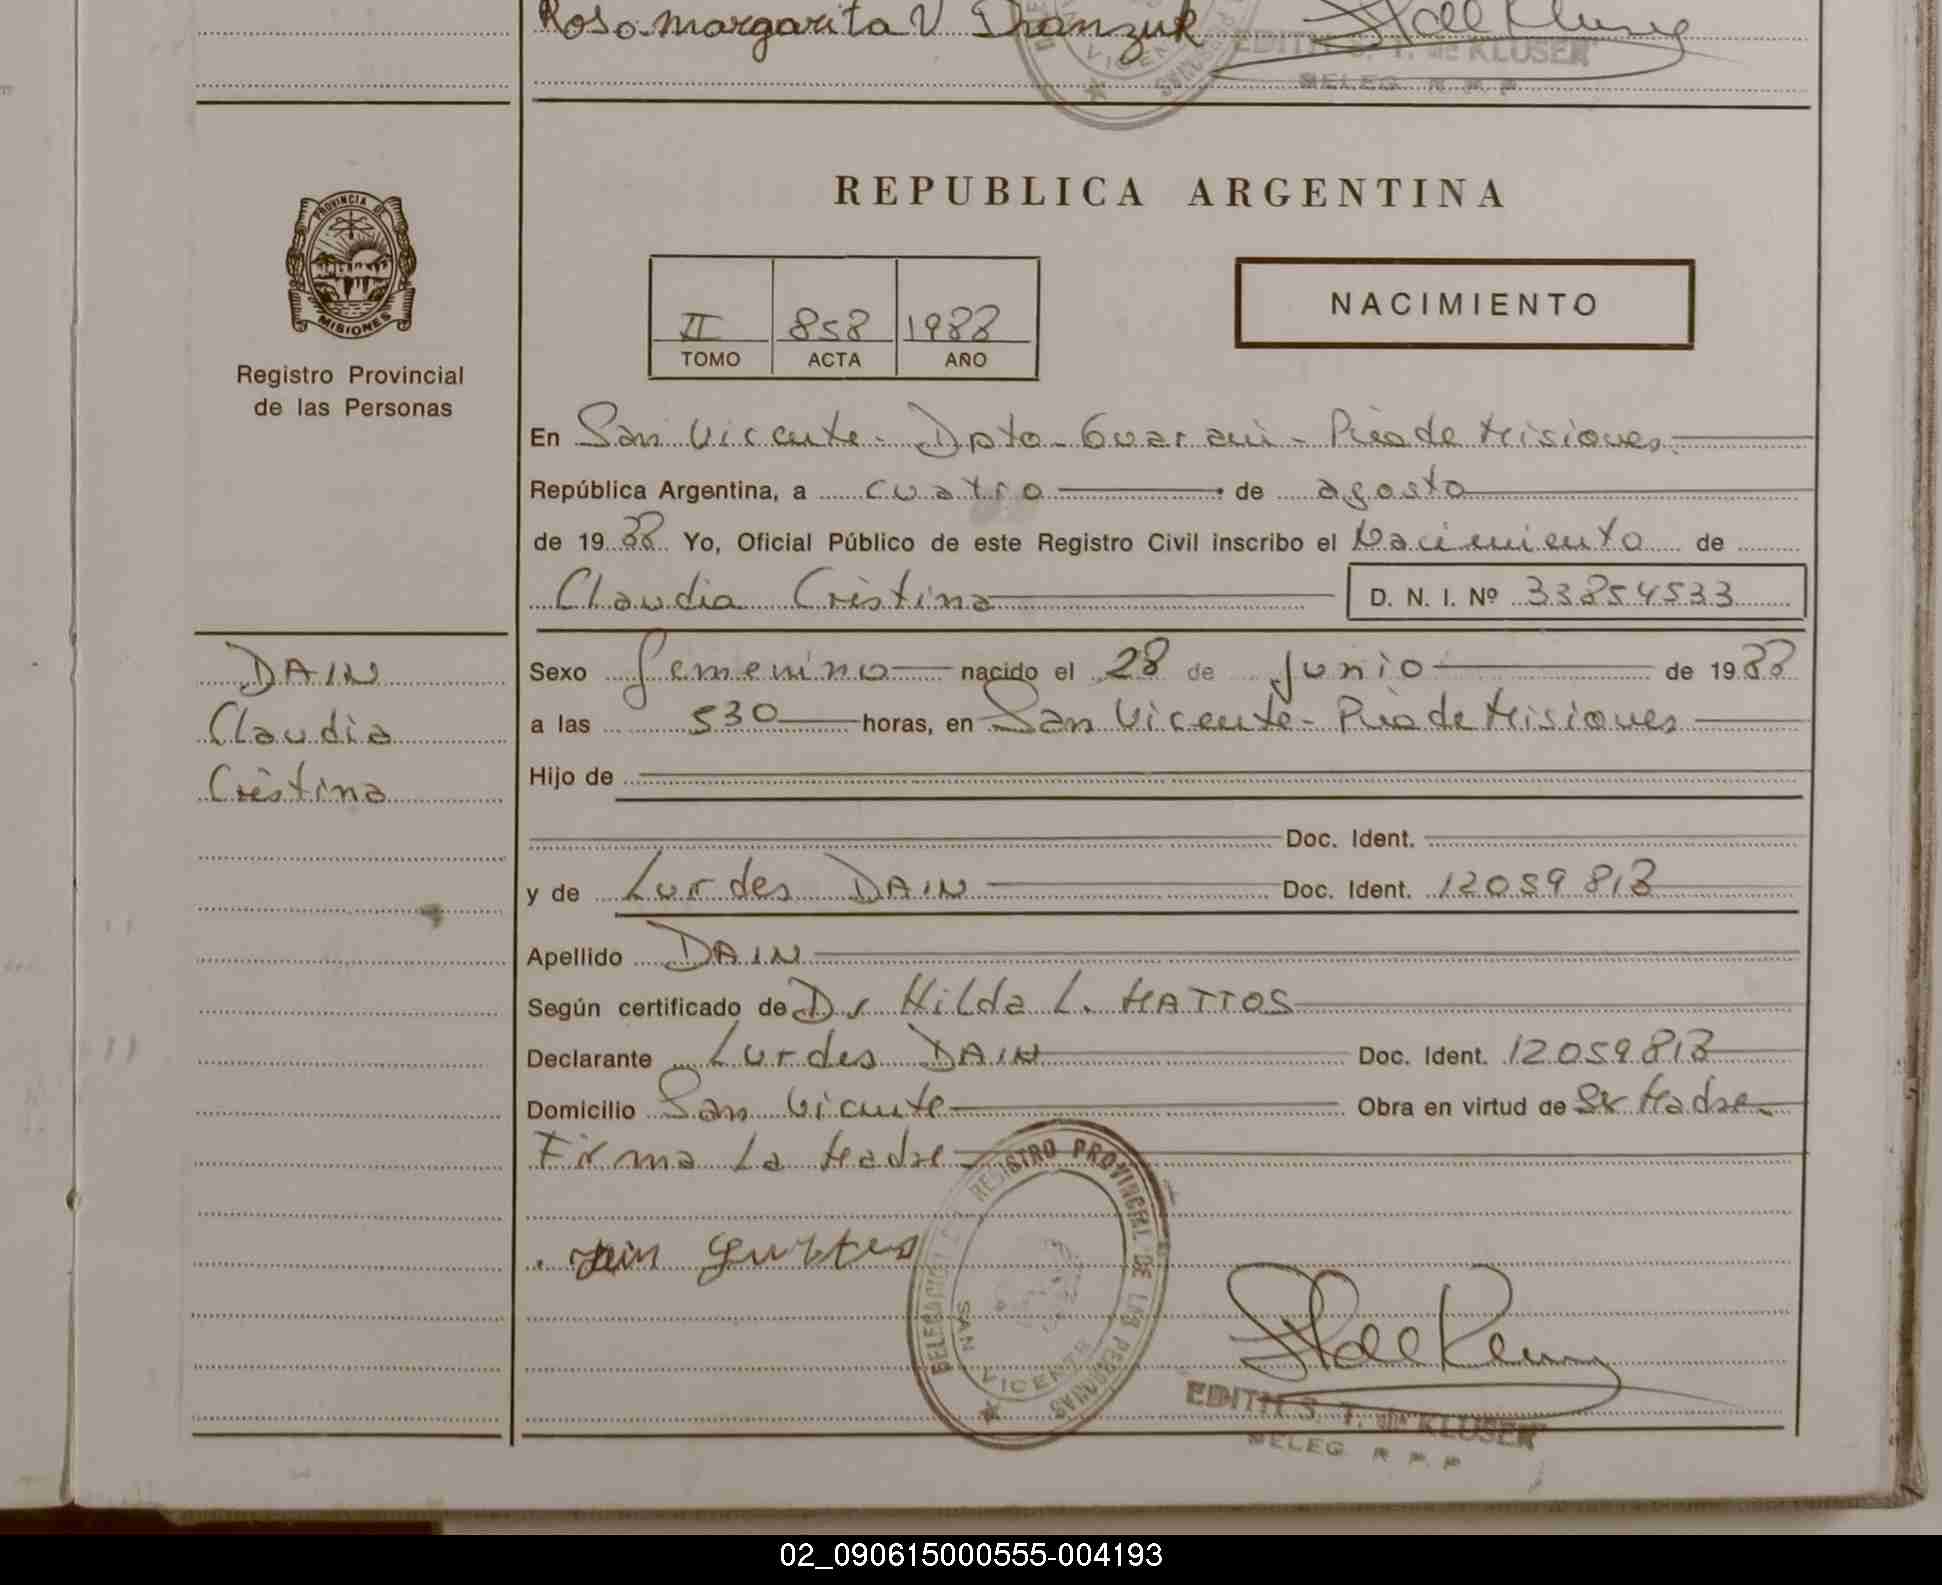 Rosa margarita V Dranzuk
EDITH S. T. de KLUSER
DELEG. R. P. P.
VICENTE
PROVINCIA DE
MISIONES
Registro Provincial
de las Personas
REPUBLICA ARGENTINA
II 858 1988
TOMO ACTA AÑO
NACIMIENTO
En San Vicente - Dpto - Guarani - Pcia de Misiones.
República Argentina, a cuatro de agosto
de 1988 Yo, Oficial Público de este Registro Civil inscribo el Nacimiento de
Claudia Cristina D. N. I. Nº 33854533
DAIN
Claudia
Cristina
Sexo femenino nacido el 28 de Junio de 1988
a las 530 horas, en San Vicente - Pcia de Misiones
Hijo de
Doc. Ident.
y de Lurdes DAIN Doc. Ident. 12059813
Apellido DAIN
Según certificado de Dr Hilda L. MATTOS
Declarante Lurdes DAIN Doc. Ident. 12059813
Domicilio San Vicente Obra en virtud de Ser Madre.
Firma La Madre
DELEGACION REGISTRO PROVINCIAL DE LAS PERSONAS
SAN VICENTE
EDITH S. T. de KLUSER
DELEG R P. P
02_090615000555-004193